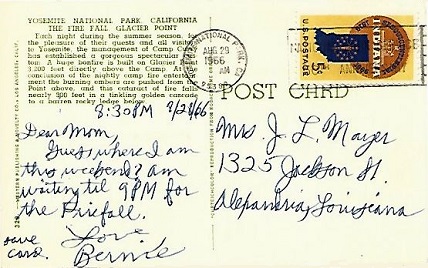 YOSEMITE NATIONAL PARK, CALIFORNIA
THE FIRE FALL GLACIER POINT
Each night during the summer season, for
the pleasure of their guests and all visitors
to Yosemite, the management of Camp Curry
has established a gorgeous spectacular
A huge bonfire is built on Glacier
3,200 feet directly above the Camp. At
conclusion of the nightly camp fire entertain-
ment the burning embers are pushed from the
Point above, and this cataract of fire falls
nearly 900 feet in a tinkling golden cascade
to a barren rocky ledge below.
AUG 29
1966
AM
U.S. POSTAGE
5¢
INDIANA
POST CARD
8:30PM 8/28/66
Dear Mom,
Guess where I am
this weekend? am
waiting til 9PM for
the Firefall.
Love
Bernie
save
card.
Mrs. J. L. Mayer
1325 Jackson St.
Alexandria, Louisiana